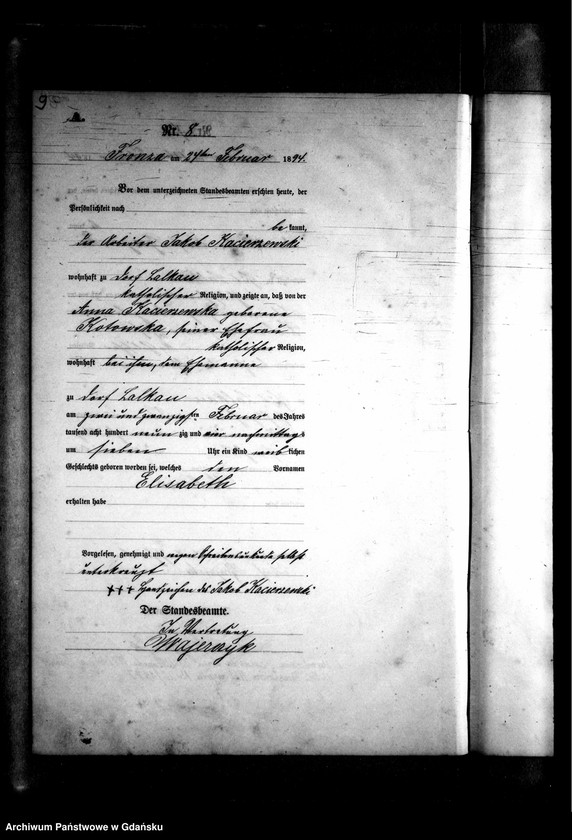 9
Nr. 8
Fronza am 24ten Februar 1894.
Vor dem unterzeichneten Standesbeamten erschien heute, der
Persönlichkeit nach
be kannt,
der Arbeiter Jakob Kacierzewski
wohnhaft zu Dorf Lalkau
katholischer Religion, und zeigte an, daß von der
Anna Kacierzewska geborene
Kotowska, seiner Ehefrau
katholischer Religion,
wohnhaft bei ihm, dem Ehemanne
zu Dorf Lalkau
am zwei und zwanzigsten Februar des Jahres
tausend acht hundert neun zig und vier nachmittags
um sieben Uhr ein Kind weib lichen
Geschlechts geboren worden sei, welches den Vornamen
Elisabeth
erhalten habe
Vorgelesen, genehmigt und wegen Schreibensunkunde selbst
unterkreuzt
+++ Handzeichen des Jakob Kacierzewski
Der Standesbeamte.
In Vertretung
Majerzyk
Archiwum Państwowe w Gdańsku